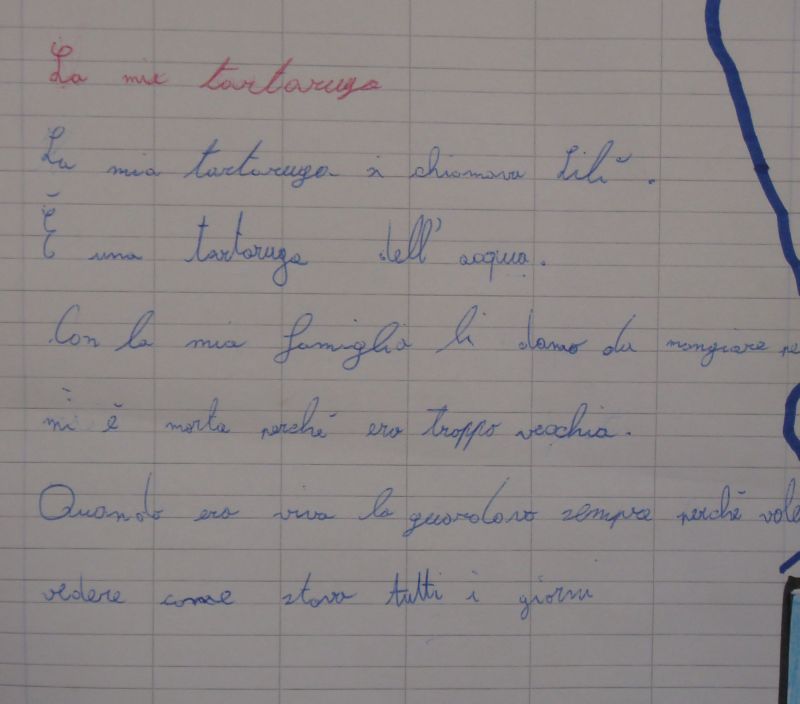 La mia tartaruga
La mia tartaruga si chiamava Lilì.
È una tartaruga dell'acqua.
Con la mia famiglia li damo da mangiare
mi è morta perché era troppo vecchia.
Quando era viva la guardavo sempre perché
vedere come stava tutti i giorni